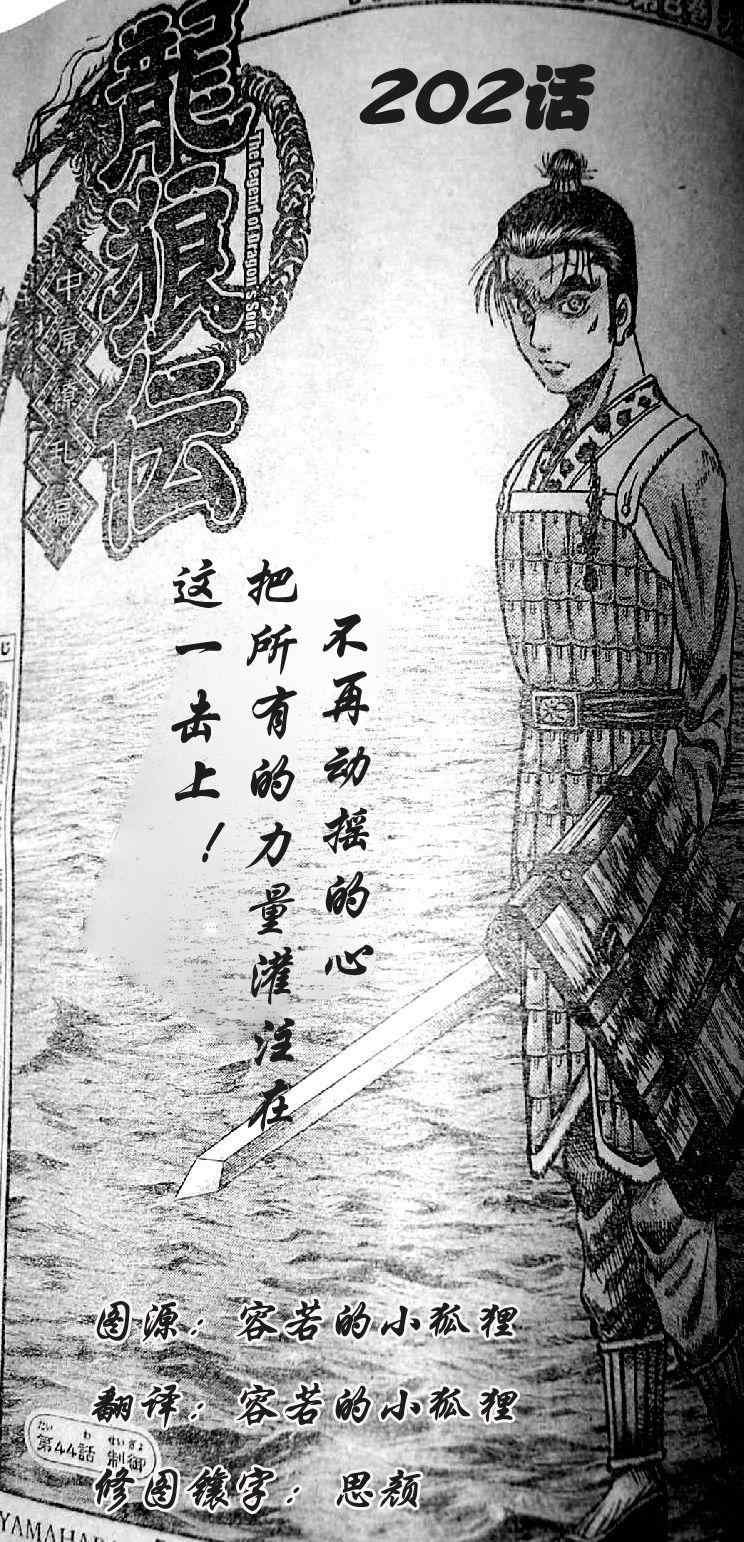 龍狼伝
The Legend of Dragon's Son
中原繚乱編
202话
不再动摇的心
把所有的力量灌注在
这一击上！
图源：容若的小狐狸
翻译：容若的小狐狸
修图镶字：思颜
第44話 制御
だい わ せいぎょ
YAMAHA